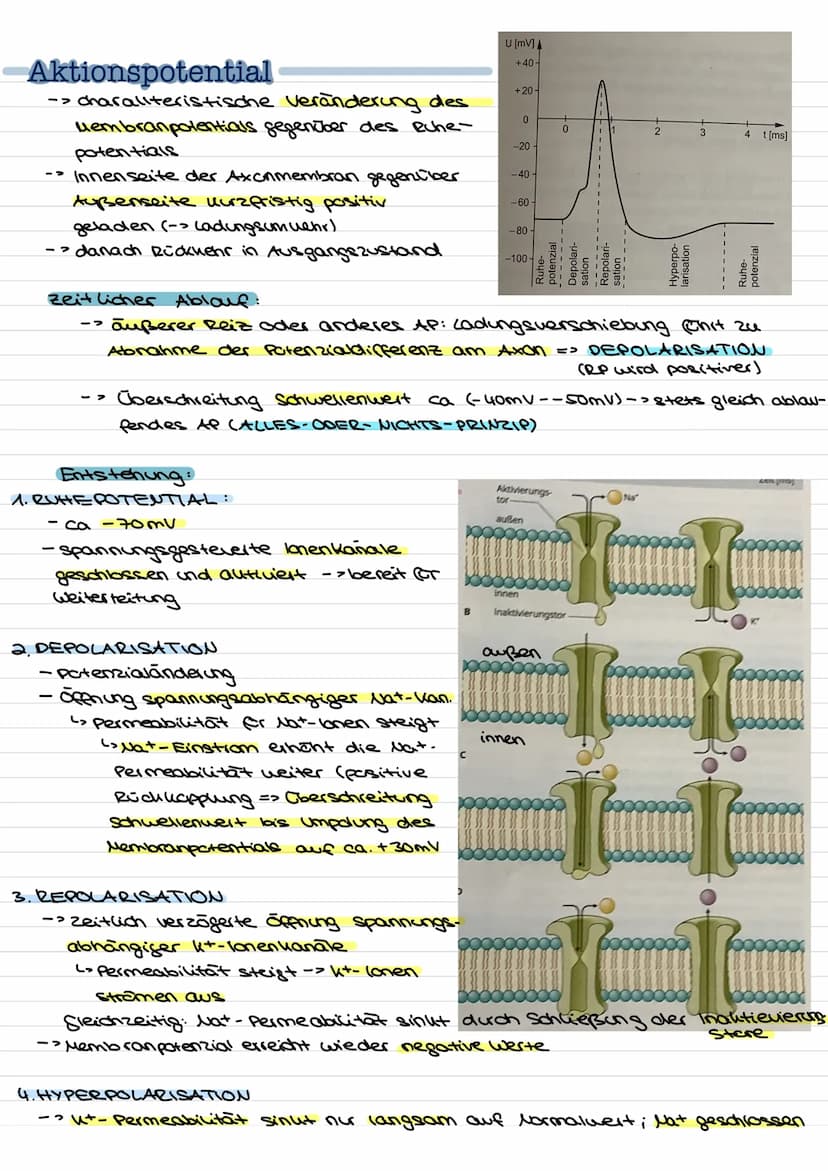 Aktionspotential
-> charakteristische Veränderung des
Membranpotentials gegenüber des Ruhe-
potentials
-> Innenseite der Axonmembran gegenüber
Außenseite kurzfristig positiv
geladen (-> Ladungsumkehr)
-> danach Rückkehr in Ausgangszustand
U [mV]
+40
+20
0
-20
-40
-60
-80
-100
0
1
2
3
4
t [ms]
Ruhe-
potenzial
Depolari-
sation
Repolari-
sation
Hyperpo-
larisation
Ruhe-
potenzial
zeitlicher Ablauf:
-> äußerer Reiz oder anderes AP: Ladungsverschiebung führt zu
Abnahme der Potenzialdifferenz am Axon => DEPOLARISATION
(RP wird positiver)
-> Überschreitung Schwellenwert ca (-40mV--50mV)-> stets gleich ablau-
fendes AP (ALLES-ODER-NICHTS-PRINZIP)
Entstehung:
1. RUHEPOTENTIAL:
- ca -70mV
- spannungsgesteuerte Ionenkanäle
geschlossen und aktiviert -> bereit für
Weiterleitung
2. DEPOLARISATION
- Potenzialänderung
- Öffnung spannungsabhängiger Na+-Kan.
↳ Permeabilität für Na+-Ionen steigt
↳ Na+-Einstrom erhöht die Na+-
Permeabilität weiter (positive
Rückkopplung => Überschreitung
Schwellenwert bis Umpolung des
Membranpotentials auf ca. +30mV
Zeit [ms]
Aktivierungs-
tor
Na⁺
außen
innen
B
Inaktivierungstor
K⁺
außen
innen
C
3. REPOLARISATION
-> zeitlich verzögerte Öffnung spannungs-
abhängiger K+-Ionenkanäle
↳ Permeabilität steigt -> K+-Ionen
strömen aus
gleichzeitig: Na+-Permeabilität sinkt durch Schließung der Inaktivierungs
tore
-> Membranpotenzial erreicht wieder negative Werte
4. HYPERPOLARISATION
-> K+-Permeabilität sinkt nur langsam auf Normalwert; Na+ geschlossen